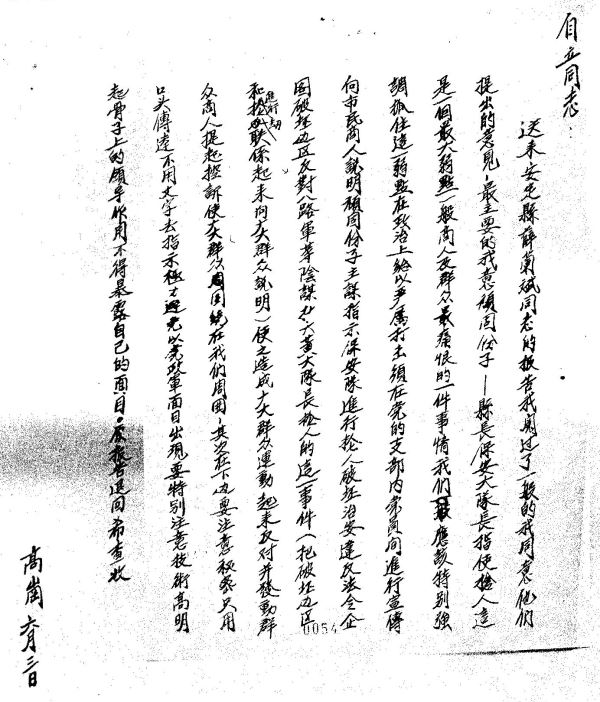 自立同志：
送来安定縣薛蘭斌同志的报告我閱过了一般的我同意他们
提出的意見，最主要的我意頑固份子——縣長保安大隊長指使搶人這
是一個最大弱點一般商人及群众最痛恨的一件事情我们應該特別強
調抓住這一弱點在政治上給以严厲打击須在党的支部内党員间進行宣傳
向市民商人説明頑固份子主謀指示保安隊進行搶人破坯治安違反法令企
图破坯边区反對八路軍等陰謀把黄大隊長搶人的這一事件（把破坯边区
和進行搶劫联系起来向广大群众説明）使之造成广大群众運動起来反对并發動群
众商人提起控訴使广大群众周围繞在我们周围，其次在下边要注意秘密只用
口头傳達不用文字去指示極力避免以党政軍面目出現要特別注意技術高明
起骨子上的領导作用不得暴露自己的面目。原报告退回希查收
高崗 六月三日
0054